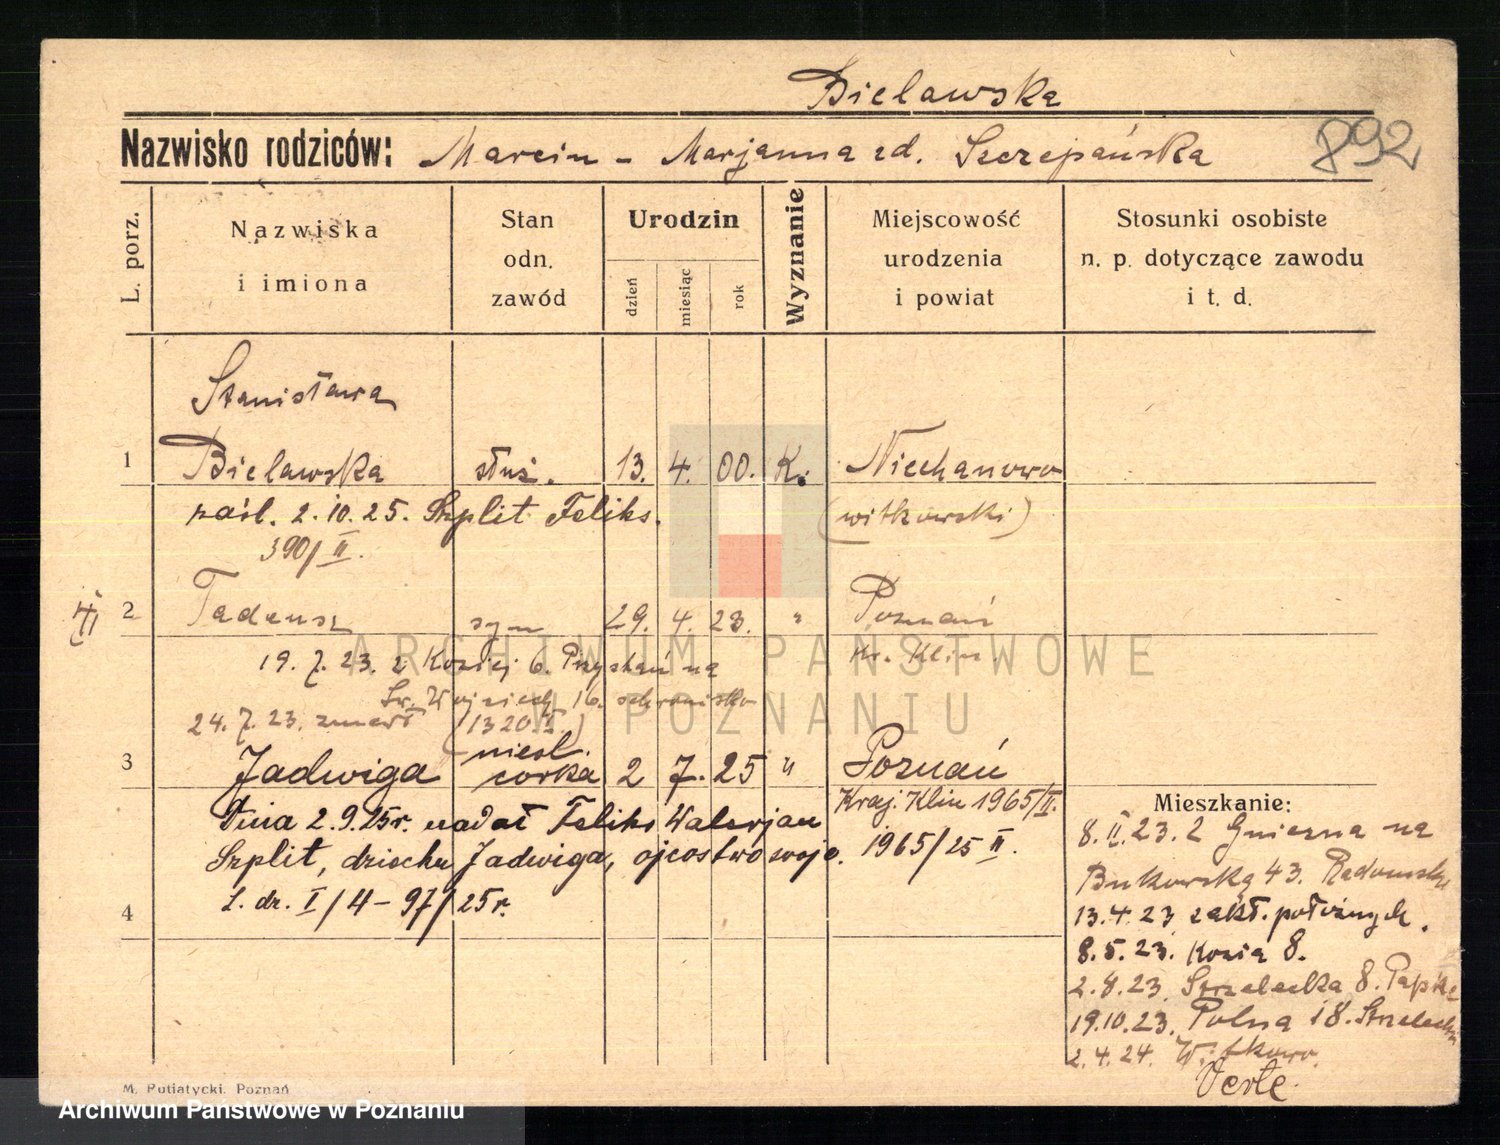 Bielawska
Nazwisko rodziców: Marcin - Marjanna zd. Szczepańska
892
L. porz.
Nazwiska i imiona
Stan odn. zawód
Urodzin
dzień
miesiąc
rok
Wyznanie
Miejscowość urodzenia i powiat
Stosunki osobiste n. p. dotyczące zawodu i t. d.
Stanisława
1 Bielawska służ. 13. 4. 00. K. Niechanowo
zaśl. 2.10.25. Szplit Feliks. (witkowski)
390/II.
2 Tadeusz syn 29. 4. 23. " Poznań
19. 7. 23. z Koziej 6. Przystań na Kr. Klin.
Św. Wojciech 16. schronisko
24. 7. 23. zmarł (1320 II)
nieśl.
3 Jadwiga córka 2 7. 25 " Poznań
Kraj. Klin 1965/II.
Dnia 2.9.25r. nadał Feliks Walerjan
Szplit, dziecku Jadwiga, ojcostwo swoje. 1965/25 II.
L. dz. I/4-97/25r.
4
Mieszkanie:
8.II.23. z Gniezna na
Bukowską 43. Radomska
13.4.23 zakł. położnych.
8.5.23. Kozia 8.
2.8.23. Strzelecka 8. Papke
19.10.23. Polna 18. Strzelecka
2.4.24. Witkowo.
Verte.
M. Putiatycki. Poznań
ARCHIWUM PAŃSTWOWE
W POZNANIU
Archiwum Państwowe w Poznaniu